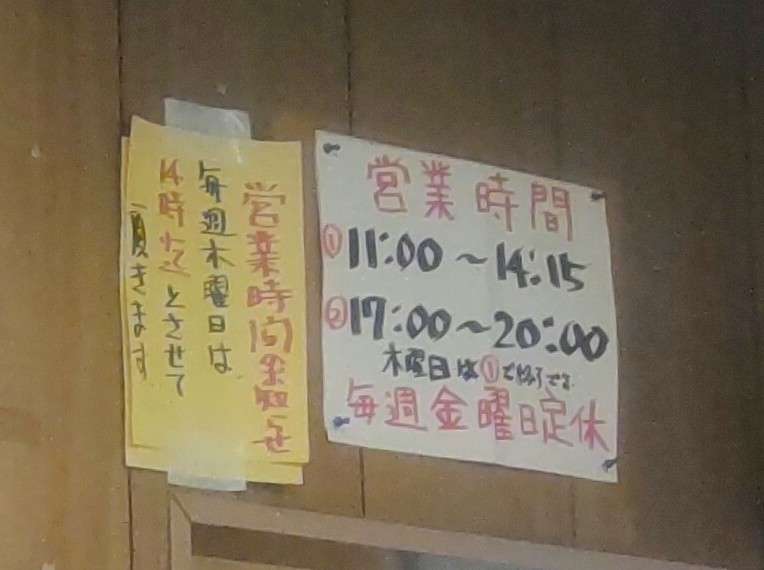 営業時間お知らせ
毎週木曜日は
14時迄とさせて
頂きます
営業時間
①11:00～14:15
②17:00～20:00
木曜日は①で終了です
毎週金曜日定休